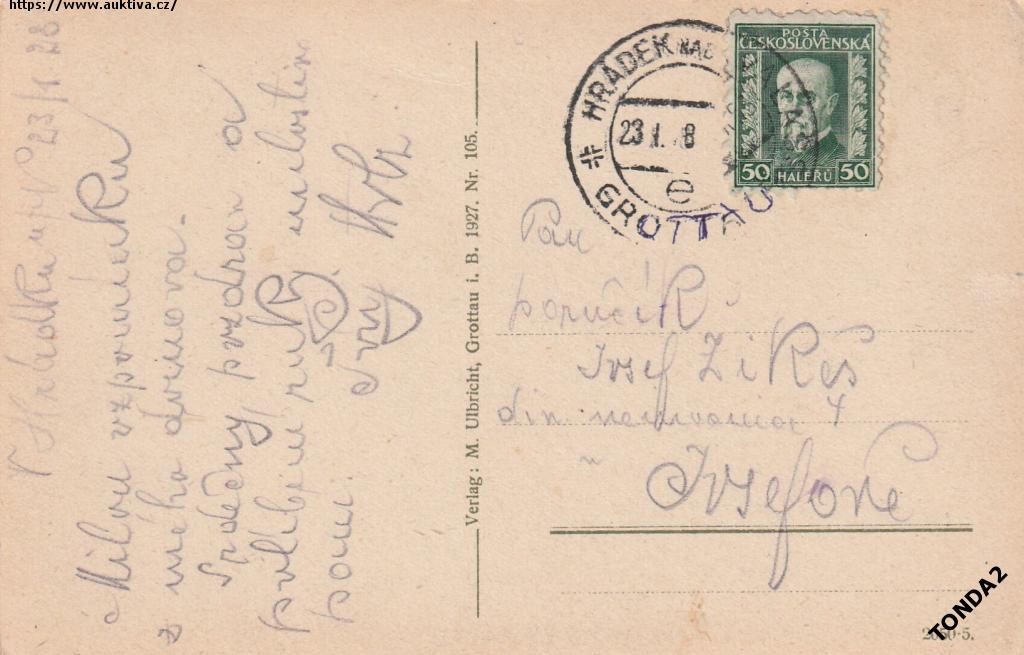 https://www.auktiva.cz/
V Hrádku n/N 23/1 28
Milou vzpomínku
z mého domova.
Srdečný pozdrav a
políbení ruky milostivé
Tvůj
Verlag: M. Ulbricht, Grottau i. B. 1927. Nr. 105.
POSTA
ČESKOSLOVENSKÁ
50 HALÉŘŮ 50
HRÁDEK NAD
23 I. 8
e
GROTTAU
Pan
poručík
Josef Zikeš
Josefově
2650-5.
TONDA2